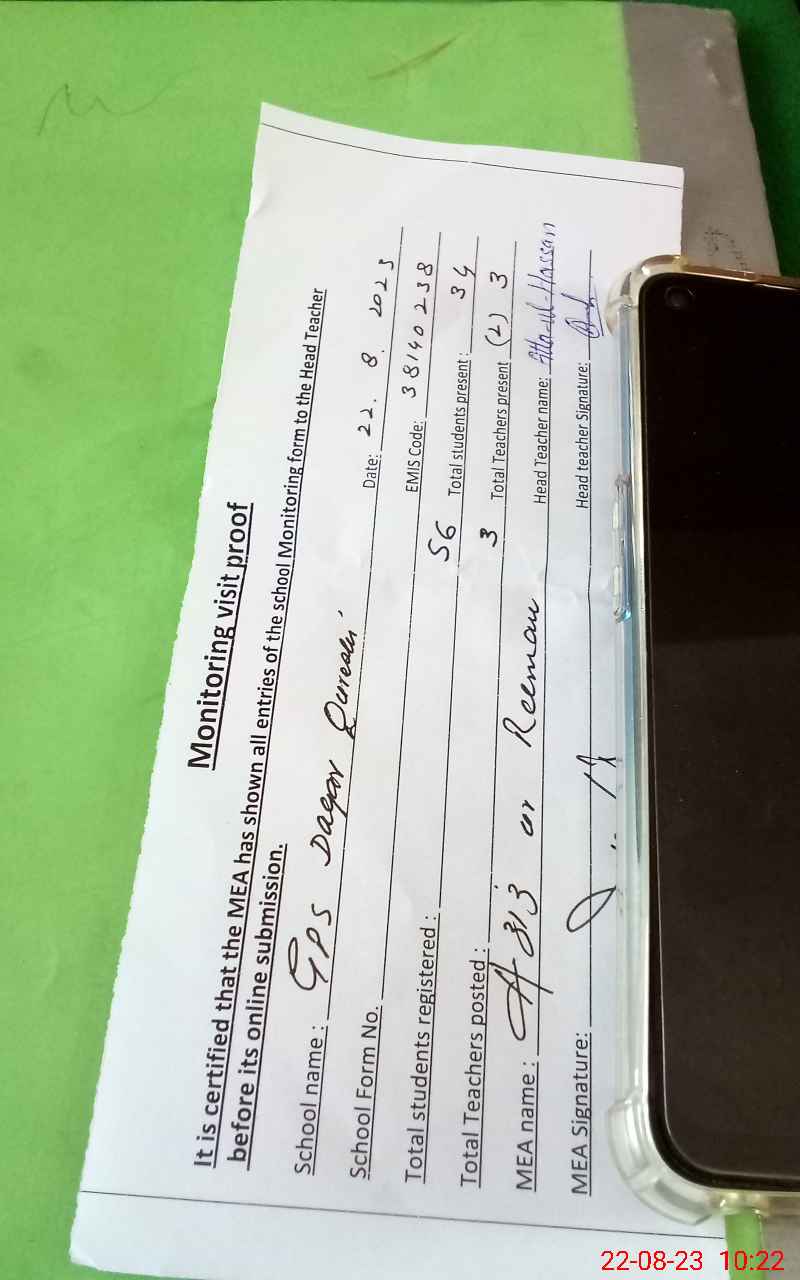 Monitoring visit proof
It is certified that the MEA has shown all entries of the school Monitoring form to the Head Teacher
before its online submission.
School name : GPS Dagar Qureshi
School Form No. Date: 22. 8. 2023
Total students registered : 56 EMIS Code: 38140238
Total Teachers posted : 3 Total students present : 34
MEA name : Aziz ur Reeman Total Teachers present (2) 3
MEA Signature: Head Teacher name: Atta-ul-Hassan
Head teacher Signature:
22-08-23 10:22